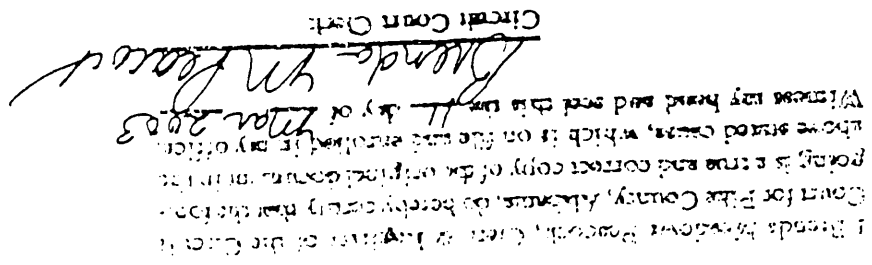 I Brenda Meadows Peacock, Clerk & Register of the Circuit
Court for Pike County, Alabama, do hereby certify that the fore-
going is a true and correct copy of the original document in the
above stated cause, which is on file and enrolled in my office.
Witness my hand and seal this the 11 day of Mar 2003
Brenda M Peacock
Circuit Court Clerk